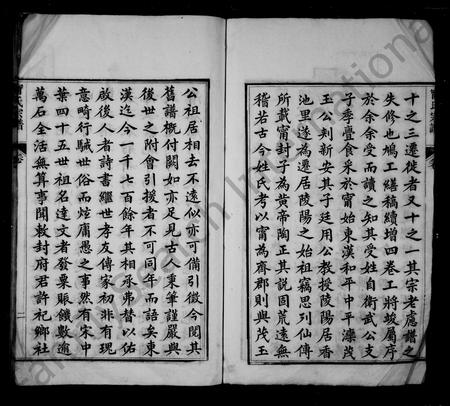 十之三遷徙者又十之一其宗老慮譜之
失修也鳩工繕稿續增四卷工將竣屬序
於余余受而讀之知其受姓自衛武公支
子季亹食采於甯始東漢和平中平濼茂
玉公判新安其子廷用公教授陵陽居香
池里遂為遷居陵陽之始祖竊思列仙傳
所載甯封子為黃帝陶正其說固荒遠無
稽若古今姓氏考以甯為齊郡則與茂玉
公祖居相去不遠似亦可備引徵今閱其
舊譜概付闕如亦足見古人秉筆謹嚴與
後世之附會引援者不可同年而語矣東
漢迄今一千七百餘年其相承弗替以佑
啟後人者詩書繼世孝友傳家初非有瑰
意畸行駴世俗而炫庸愚之事然有宋中
葉四十五世祖名達文者發粟賑饑數逾
萬石全活無算事聞敕封府君許祀鄉社
甯氏宗譜
卷
二